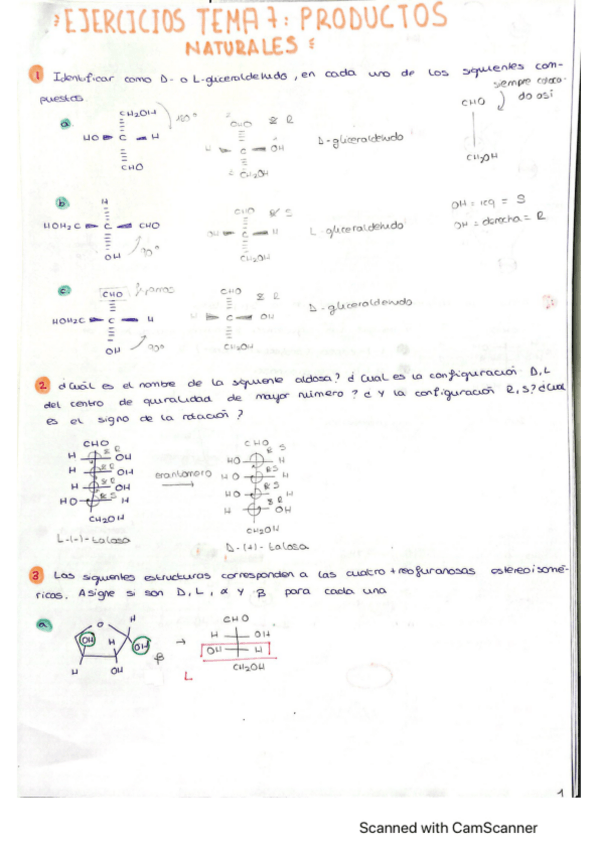 EJERCICIOS TEMA 7: PRODUCTOS
NATURALES
1 Identificar como D- o L-gliceraldehido, en cada uno de los siguientes com-
puestos
siempre coloco-
do así
CHO
CH2OH
a
CH2OH
HO C H
CHO
180°
CHO R
H C OH
CH2OH
D-gliceraldehido
b
H
HOH2C C CHO
OH
90°
CHO S
OH C H
CH2OH
L-gliceraldehido
OH = izq = S
OH = derecha = R
c
CHO
HOH2C C H
OH
90°
CHO R
H C OH
CH2OH
D-gliceraldehido
2 ¿Cuál es el nombre de la siguiente aldosa? ¿Cual es la configuración D,L
del centro de quiralidad de mayor número? ¿Y la configuración R,S? ¿Cual
es el signo de la rotación?
CHO
H OH R
H OH R
H OH R
HO H S
CH2OH
L-(-)-talosa
enantiómero
CHO
HO H S
HO H S
HO H S
H OH R
CH2OH
D-(+)-talosa
3 Las siguientes estructuras corresponden a las cuatro treofuranosas estereoisomé-
ricas. Asigne si son D, L, α y β para cada una
a
O H
OH H OH
H OH
β
CHO
H OH
OH H
CH2OH
L
1
Scanned with CamScanner